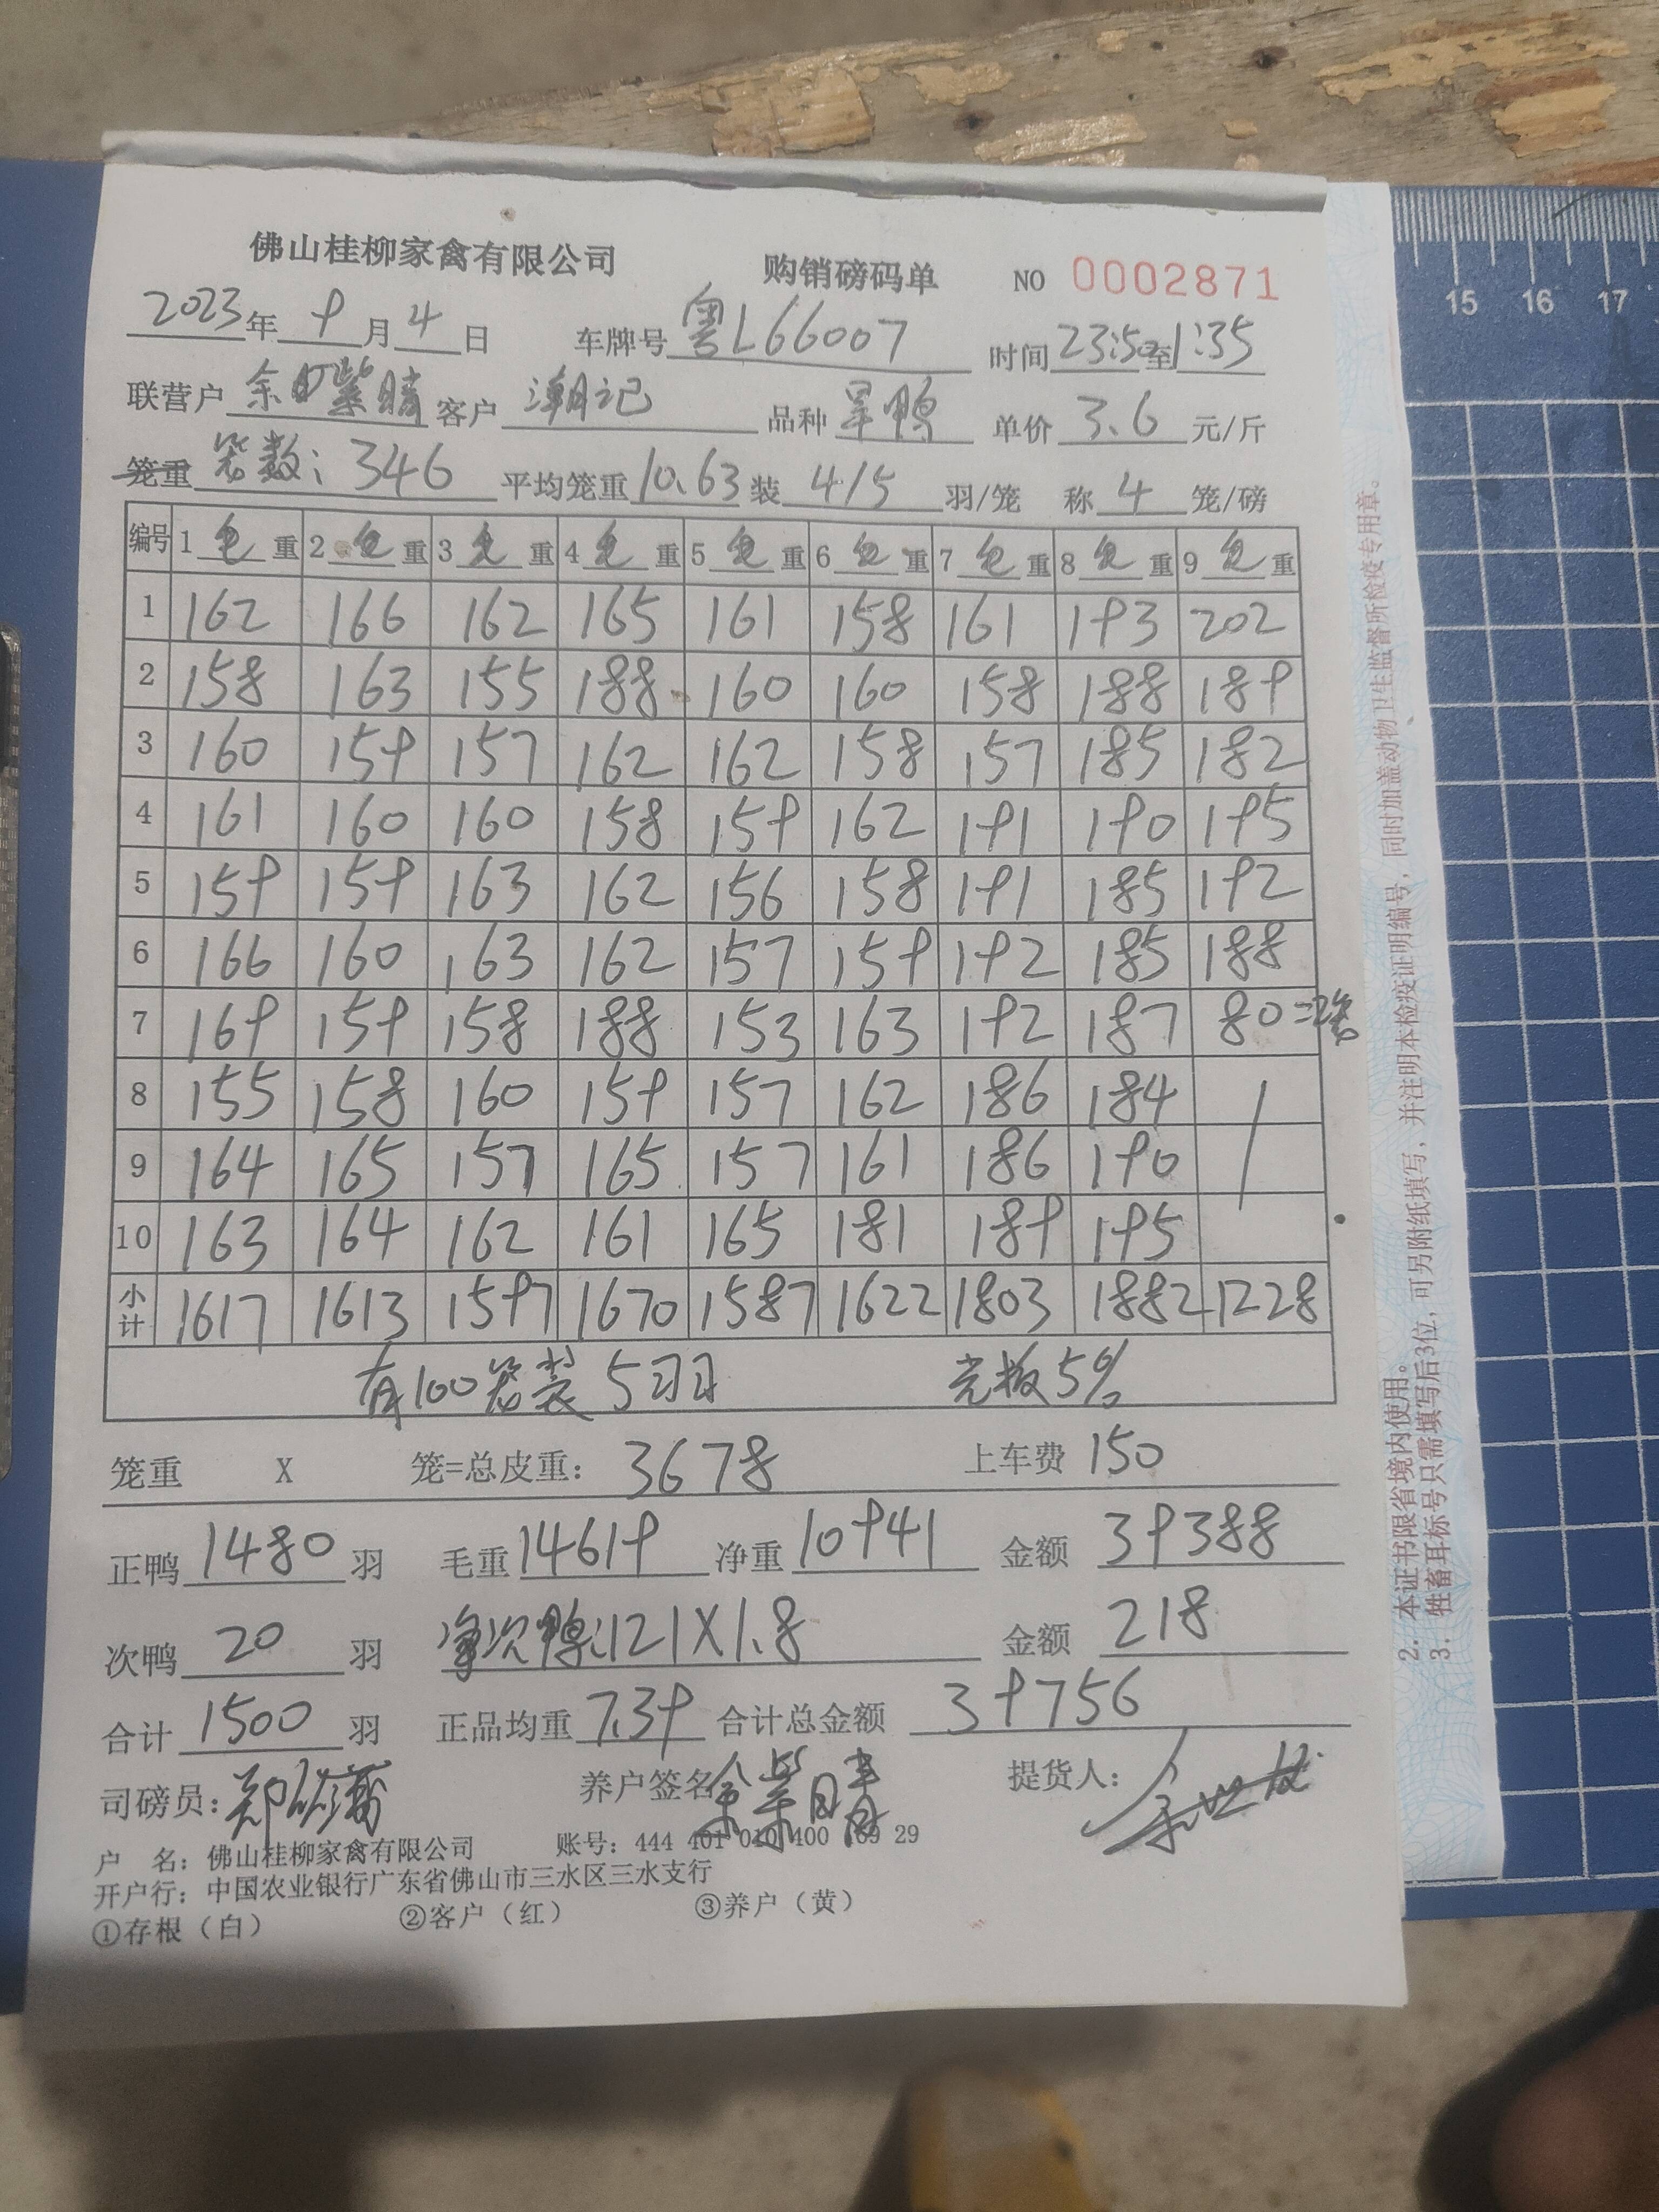 佛山桂柳家禽有限公司 购销磅码单 NO 0002871
2023年 9月 4日 车牌号 粤L66007 时间 23:50至1:35
联营户 余紫晴 客户 潮记 品种 旱鸭 单价 3.6 元/斤
笼重 笼数: 346 平均笼重 10.63 装 4/5 羽/笼 称 4 笼/磅
编号 1 毛 重 2 毛 重 3 毛 重 4 毛 重 5 毛 重 6 毛 重 7 毛 重 8 毛 重 9 毛 重
1 162 166 162 165 161 158 161 193 202
2 158 163 155 188 160 160 158 188 189
3 160 159 157 162 162 158 157 185 182
4 161 160 160 158 159 162 191 190 195
5 159 159 163 162 156 158 191 185 192
6 166 160 163 162 157 159 192 185 188
7 169 159 158 188 153 163 192 187 80=2笼
8 155 158 160 159 157 162 186 184
9 164 165 157 165 157 161 186 190
10 163 164 162 161 165 181 189 195
小计 1617 1613 1597 1670 1587 1622 1803 1882 1228
有100笼装5羽 光板5%
笼重 X 笼=总皮重: 3678 上车费 150
正鸭 1480 羽 毛重 14619 净重 10941 金额 39388
次鸭 20 羽 净次鸭:121X1.8 金额 218
合计 1500 羽 正品均重 7.39 合计总金额 39756
司磅员: 养户签名 余紫晴 提货人:
户 名: 佛山桂柳家禽有限公司 账号: 444 401 010 400 169 29
开户行: 中国农业银行广东省佛山市三水区三水支行
①存根(白) ②客户(红) ③养户(黄)
15 16 17
2. 本证书限省境内使用。
3. 牲畜耳标号只需填写后3位,可另附纸填写,并注明本检疫证明编号,同时加盖动物卫生监督所检疫专用章。